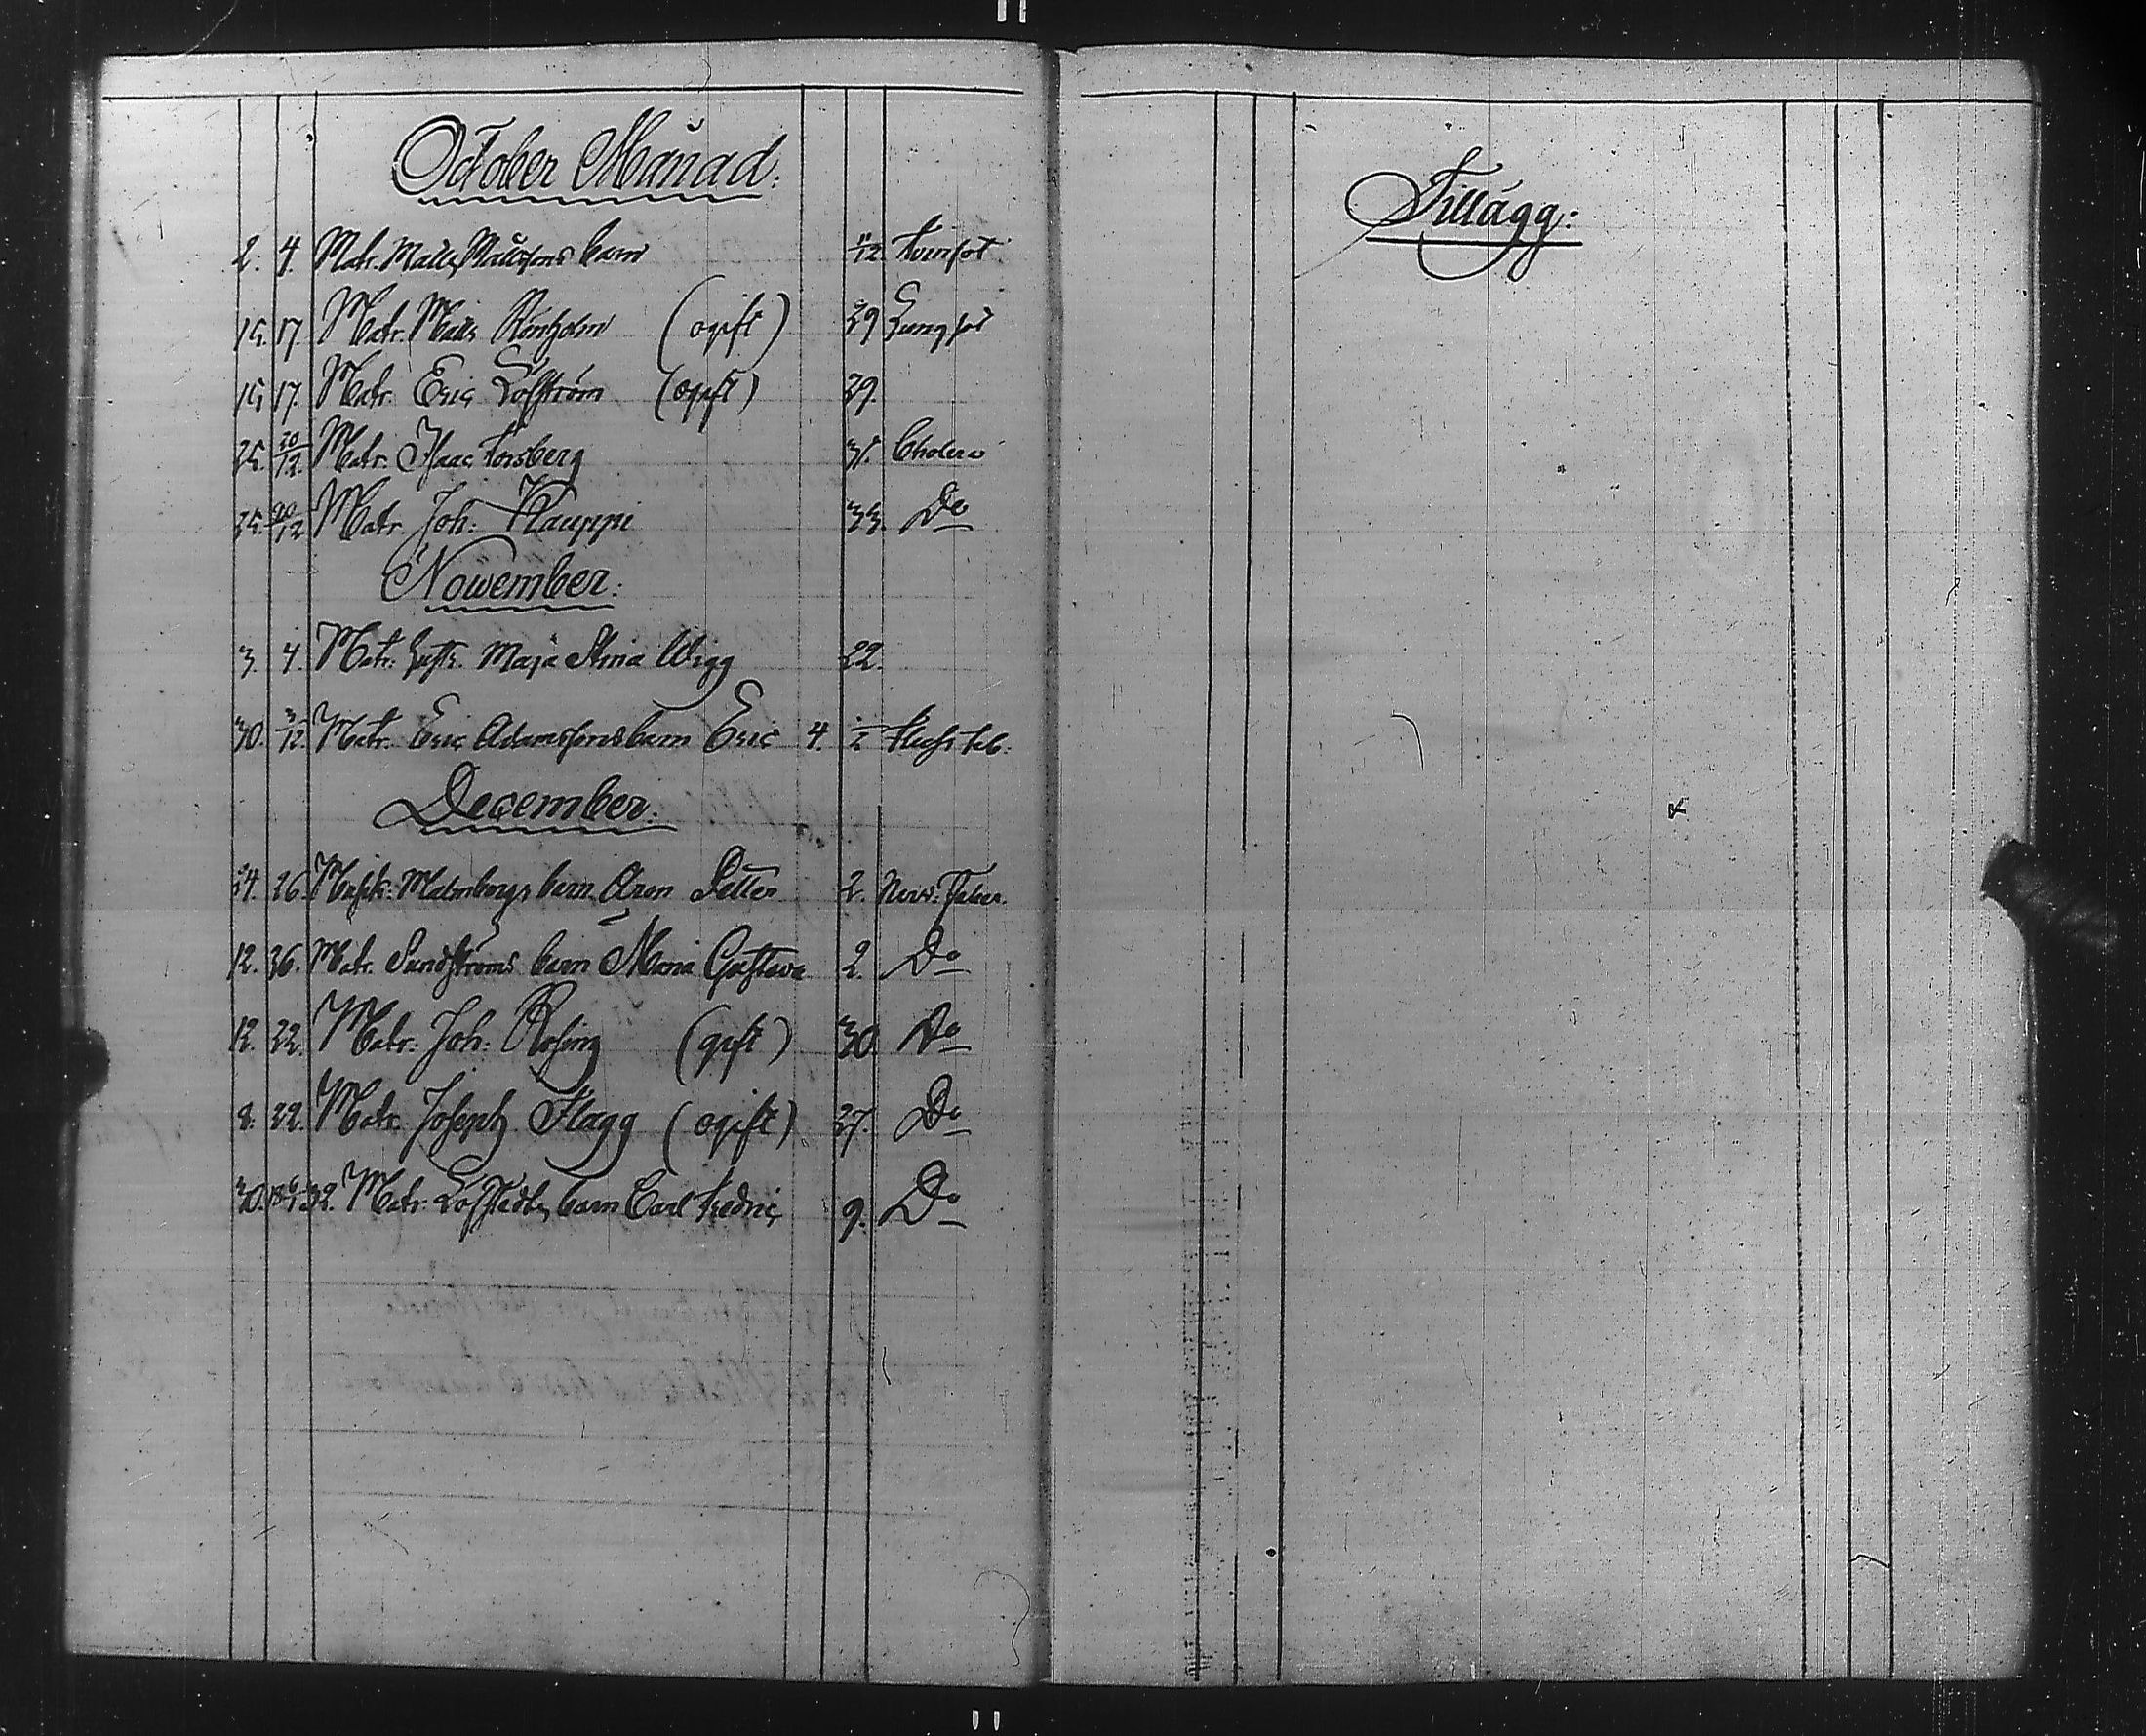 October Månad:
2. 4. Matr. Matts Mattssons barn 11/12 Twinsot
15. 17. Matr. Matts Rönholm (ogift) 29 Lungsot
15. 17. Matr. Eric Löfström (ogift) 29.
25. 20/12. Matr. Isaac Forsberg Cholera
25. 20/12 Matr. Joh: Kauppi 33. Do
November:
3. 4. Matr: hustr. Maja Stina Wigg 22.
30. 3/12. Matr. Eric Adamssons barn Eric 4.
December:
24. 26. Malmbergs barn Aron Petter 2. Nerv: Feber.
12. 26. Matr. Sundströms barn Maria Gustava 2. Do
12. 22. Matr: Joh: Rosing (gift) 30. Do
8. 22. Matr. Joseph Flagg (ogift) 27. Do
30. Matr: Löfstedts barn Carl Fredric 9. Do
Tillägg: